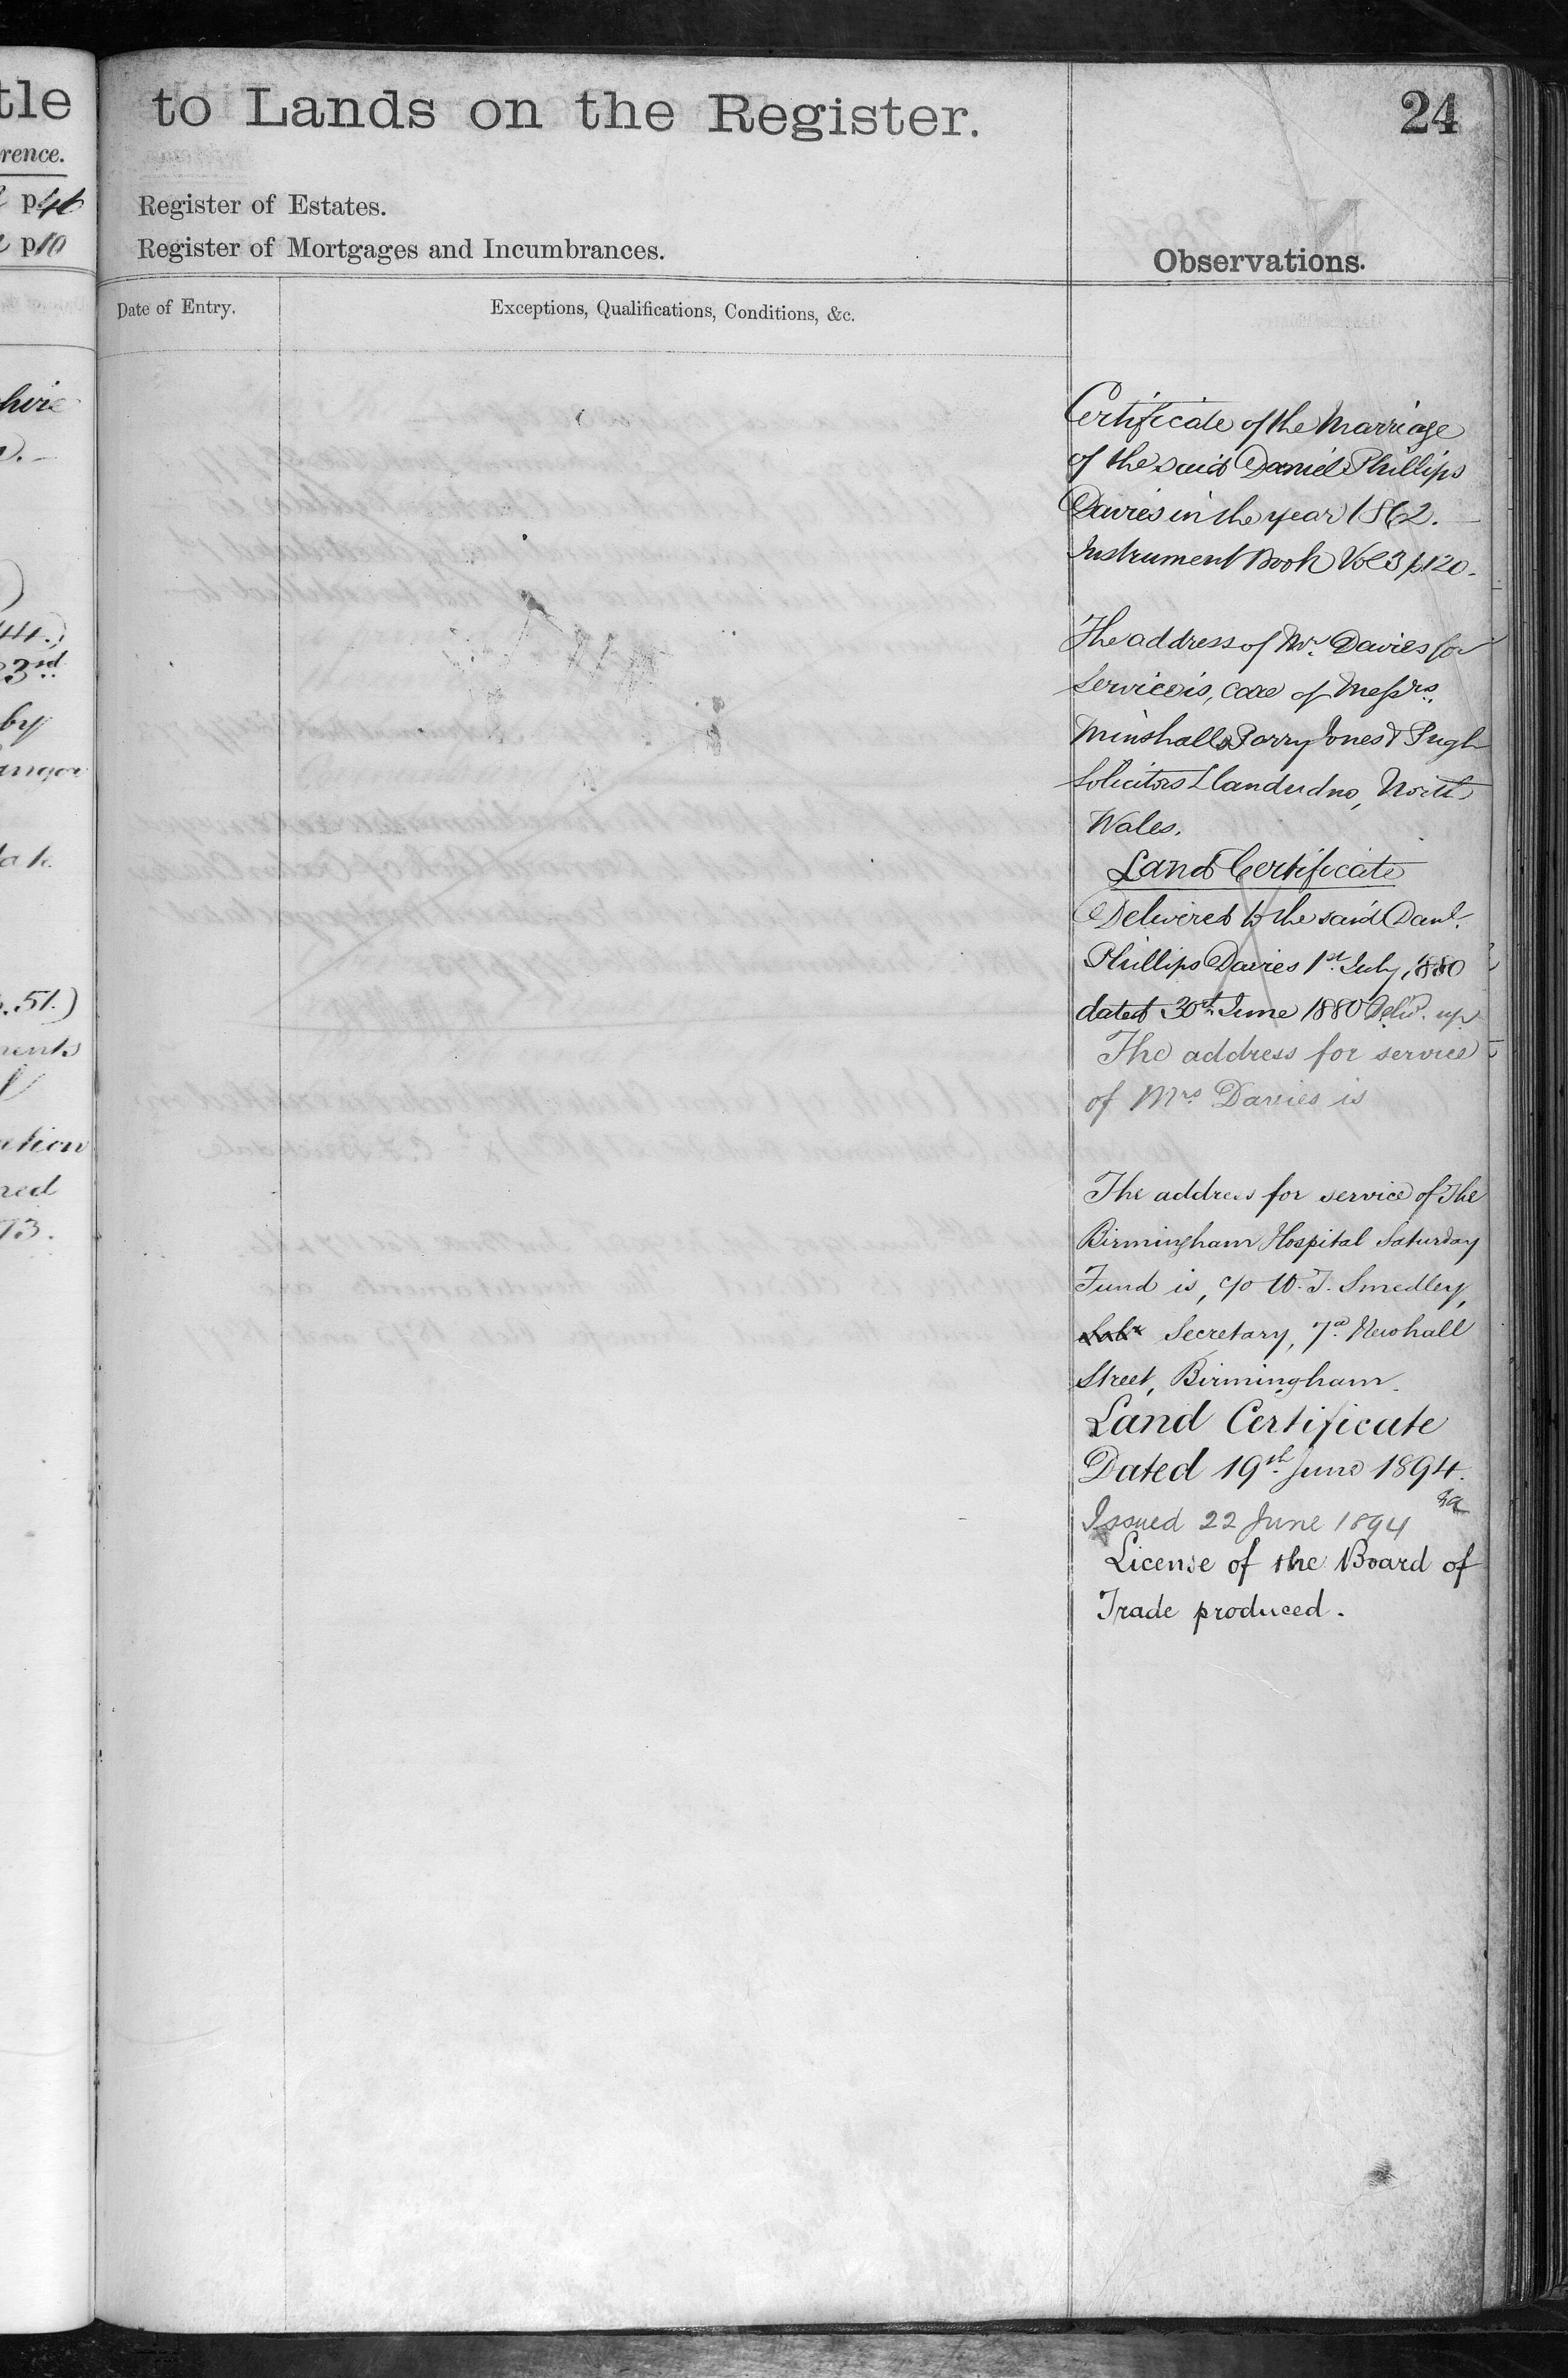 tle
rence.
p 46
p 10
hire
44.)
3rd
by
angor
p. 51.)
ments
73.
to Lands on the Register.
24
Register of Estates.
Register of Mortgages and Incumbrances.
Observations.
Date of Entry.
Exceptions, Qualifications, Conditions, &c.
Certificate of the Marriage
of the said Daniel Phillips
Davies in the year 1862.
Instrument Book Vol 3 p 120.
The address of Mr. Davies for
Service is, care of Messrs.
Minshalls Parry Jones & Pugh
Solicitors Llandudno, North
Wales.
Land Certificate
Delivered to the said Danl.
Phillips Davies 1st July, 1880
dated 30th June 1880 Delivd. up
The address for service
of Mrs Davies is
The address for service of The
Birmingham Hospital Saturday
Fund is, c/o W. T. Smedley,
Secretary, 7a Newhall
Street, Birmingham.
Land Certificate
Dated 19th June 1894.
Issued 22 June 1894
License of the Board of
Trade produced.